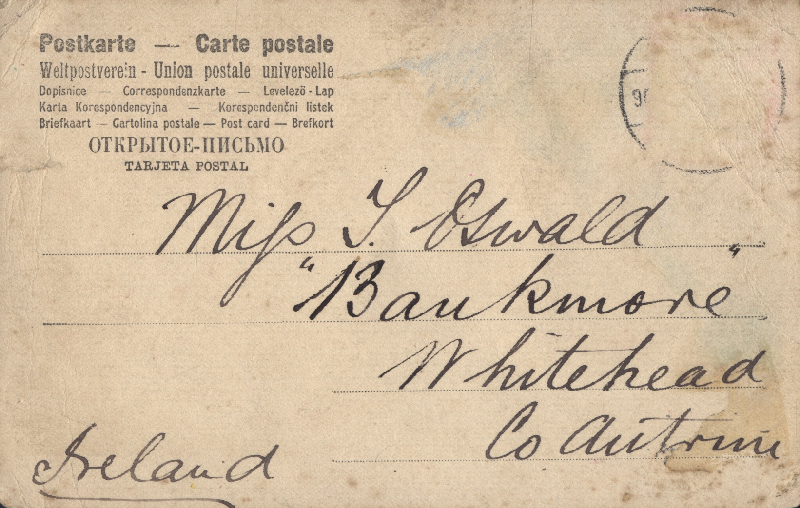 Postkarte — Carte postale
Weltpostverein - Union postale universelle
Dopisnice — Correspondenzkarte — Levelező-Lap
Karta Korespondencyjna — Korespondenčni listek
Briefkaart — Cartolina postale — Post card — Brefkort
ОТКРЫТОЕ-ПИСЬМО
TARJETA POSTAL
Miss I. Oswald
"Bankmore"
Whitehead
Co Antrim
Ireland